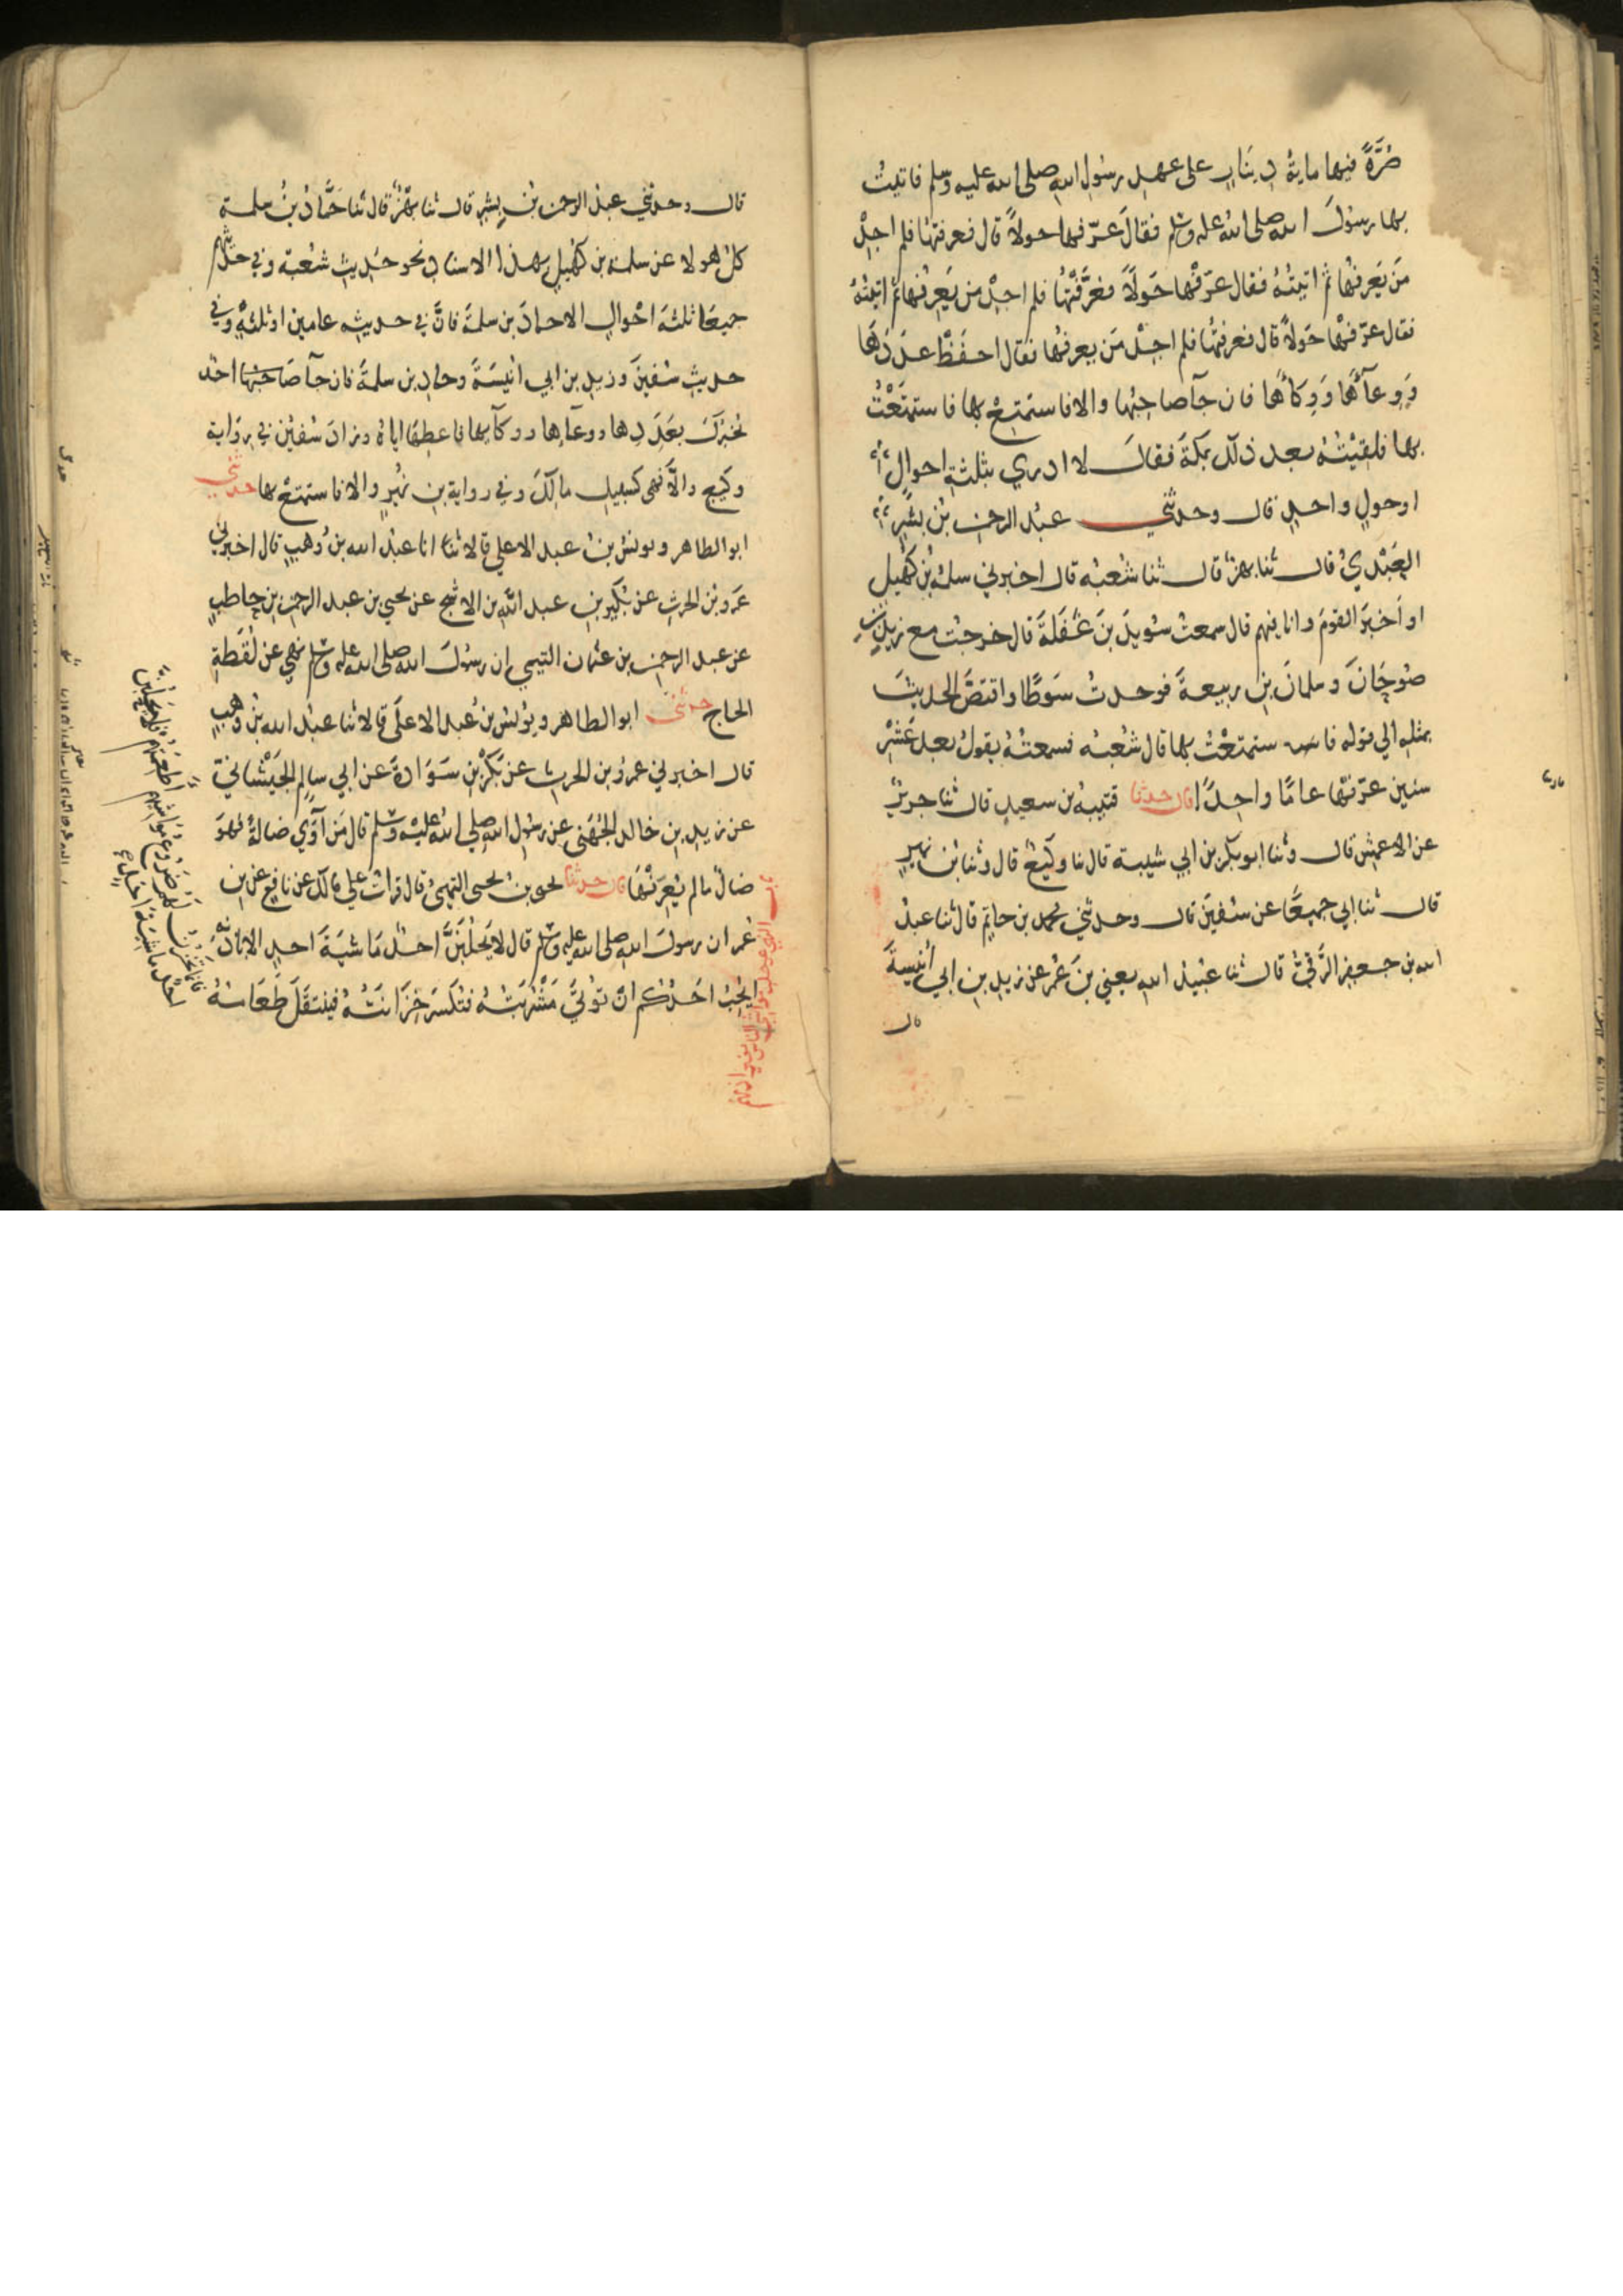 صُرَّةً فيها ماية دينار على عهد رسول الله صلى الله عليه وسلم فاتيت
بها رسول الله صلى الله عليه وسلم فقال عرّفها حولاً قال فعرفتها فلم اجد
مَن يَعرفُها ثم اتيته فقال عرّفها حَولاً فعرَّفتُها فلم اجد من يَعرِفها ثم اتيته
فقال عرّفها حَولاً قال فعرفتها فلم اجد مَن يعرفها فقال احفَظْ عَدَدَها
وَوِعآءَها وَوِكاءَها فان جآ صاحبُها والا فاستمتِعْ بها فاستمتَعْتُ
بها فلقِيْتُهُ بعد ذلك بمكة فقال لا ادري بثلثةِ احوالٍ
او حولٍ واحدٍ قال وحدثني عبد الرحمن بن بشر
العَبْدِيُّ قال ثنا بهز قال ثنا شعبة قال اخبرني سلمة بن كهيل
او اَخبرَ القومَ وانا فيهم قال سمعت سُويدَ بنَ غَفَلَةَ قال خرجت مع زيد بن
صُوحَانَ وسلمانَ بن ربيعةَ فوجدتُ سَوطًا واقتصَّ الحديثَ
بمثله الي قوله فاستمتعْتُ بها قال شعبة فسمعتُهُ يقول بعد عَشْرِ
سنين عرّفها عامًا واحدًا قال حدثنا قتيبة بن سعيد قال ثنا جريرٌ
عن الاعمش قال وثنا ابو بكر بن ابي شيبة قال ثنا وكيعٌ قال وثنا بن نمير
قال ثنا ابي جميعًا عن سفينَ قال وحدثني محمد بن حاتم قال ثنا عبد
الله بن جعفر الرَّقيُّ قال ثنا عبيد الله يعني بنَ عمر عن زيد بن ابي اُنَيسَةَ
قال
قال وحدثني عبد الرحمن بن بِشرٍ قال ثنا بهْزٌ قال ثنا حَمَّاد بن سلمة
كل هولا عن سلمة بن كُهَيلٍ بهذا الاسناد نحو حَديث شعبة وفي حديثهم
جميعًا ثلثة احْوالٍ الا حماد بن سلمة فانَّ في حديثه عامين او ثلثة وفي
حديث سُفينَ وزيد بن ابي انَيسَةَ وحماد بن سلمة فان جآ صَاحبُها احدٌ
يُخبركَ بعَدَدِها ووعآئها ووكآئها فاعطها اياهُ وزادَ سُفينُ في رواية
وكيع والّا فهي كسبيل مالكَ وفي رواية بن نُميرٍ والا فاستمتعْ بها حدثني
ابو الطاهر ويونس بن عبد الاعلي قالا ثنا انا عبد الله بن وهبٍ قال اخبرني
عمرو بن الحرث عن بُكَير بن عبد الله بن الاشج عن يحيي بن عبد الرحمن بن حاطب
عن عبد الرحمن بن عثمان التيمي ان رسُولَ الله صلى الله عليه وسلم نهي عن لُقَطةِ
الحاج حدثني ابو الطاهر ويونس بن عبد الاعلَى قالا ثنا عبد الله بن وَهبٍ
قال اخبرني عمرو بن الحرث عن بَكْر بن سَوَادةَ عن ابي سالِمٍ الجَيْشانيّ
عن زيد بن خالد الجُهَني عن رسُول الله صلي الله عليه وسلم قال مَن آوَي ضالةً فهوَ
ضالٌّ ما لم يُعرّفْها قال حدثنا يحيى بن يحيى التميميُّ قال قرأت على مالك عن نافع عن بن
عُمر ان رسولَ الله صلى الله عليه وسلم قال لا يَحْلُبَنَّ احدٌ مَاشيَةَ احدٍ الا باذنه
ايُحِبُّ احَدُكم انْ تُوتَي مَشْرُبَتُهُ فتُكسَرَ خِزَانَتُهُ فيُنتقَلَ طَعَامُهُ
فانما تَخزُنُ لهم ضُروعُ مَواشيهم اَطعِمَتَهم فلا يَحلُبَنَّ
احدٌ ماشِيَةَ احدٍ